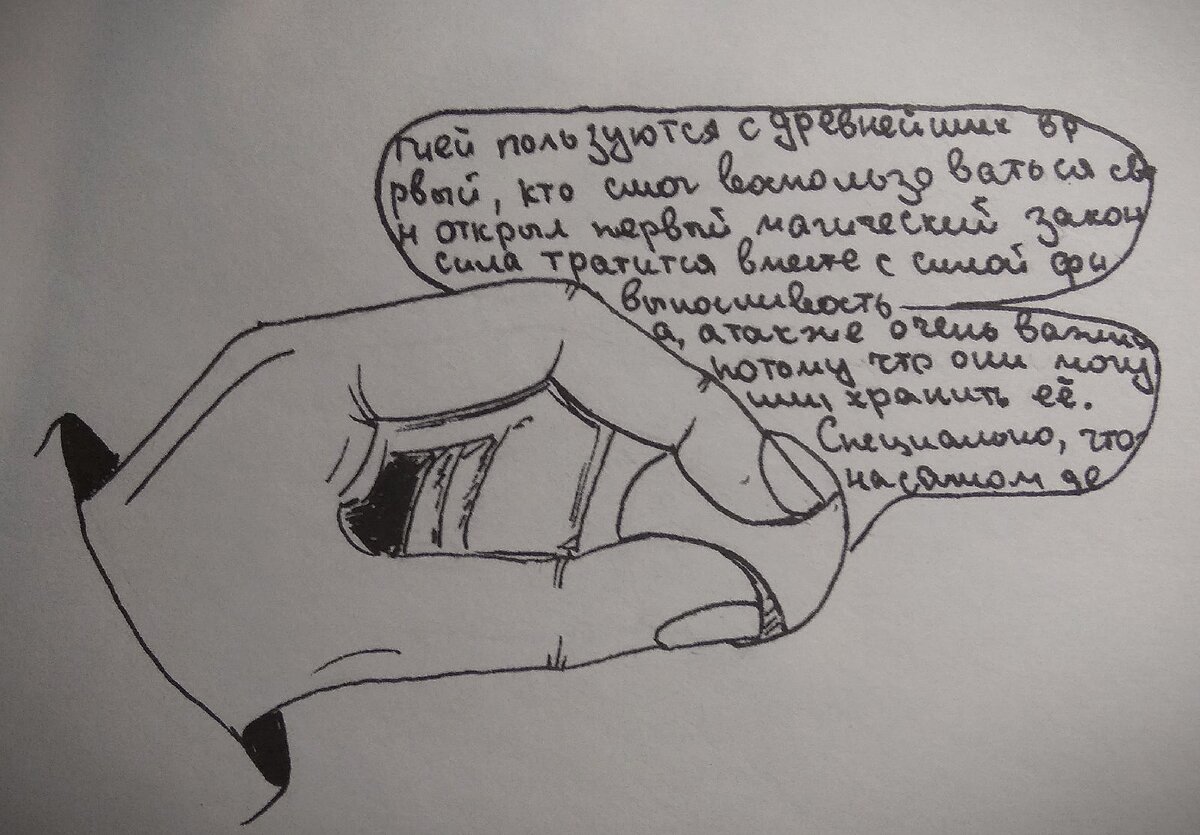 гией пользуются с древнейших вр
рвый, кто смог воспользоваться св
н открыл первый магический закон
сила тратится вместе с силой фи
выносливость
а, а также очень важны
потому что они могу
или хранить её.
Специально, что
на самом де